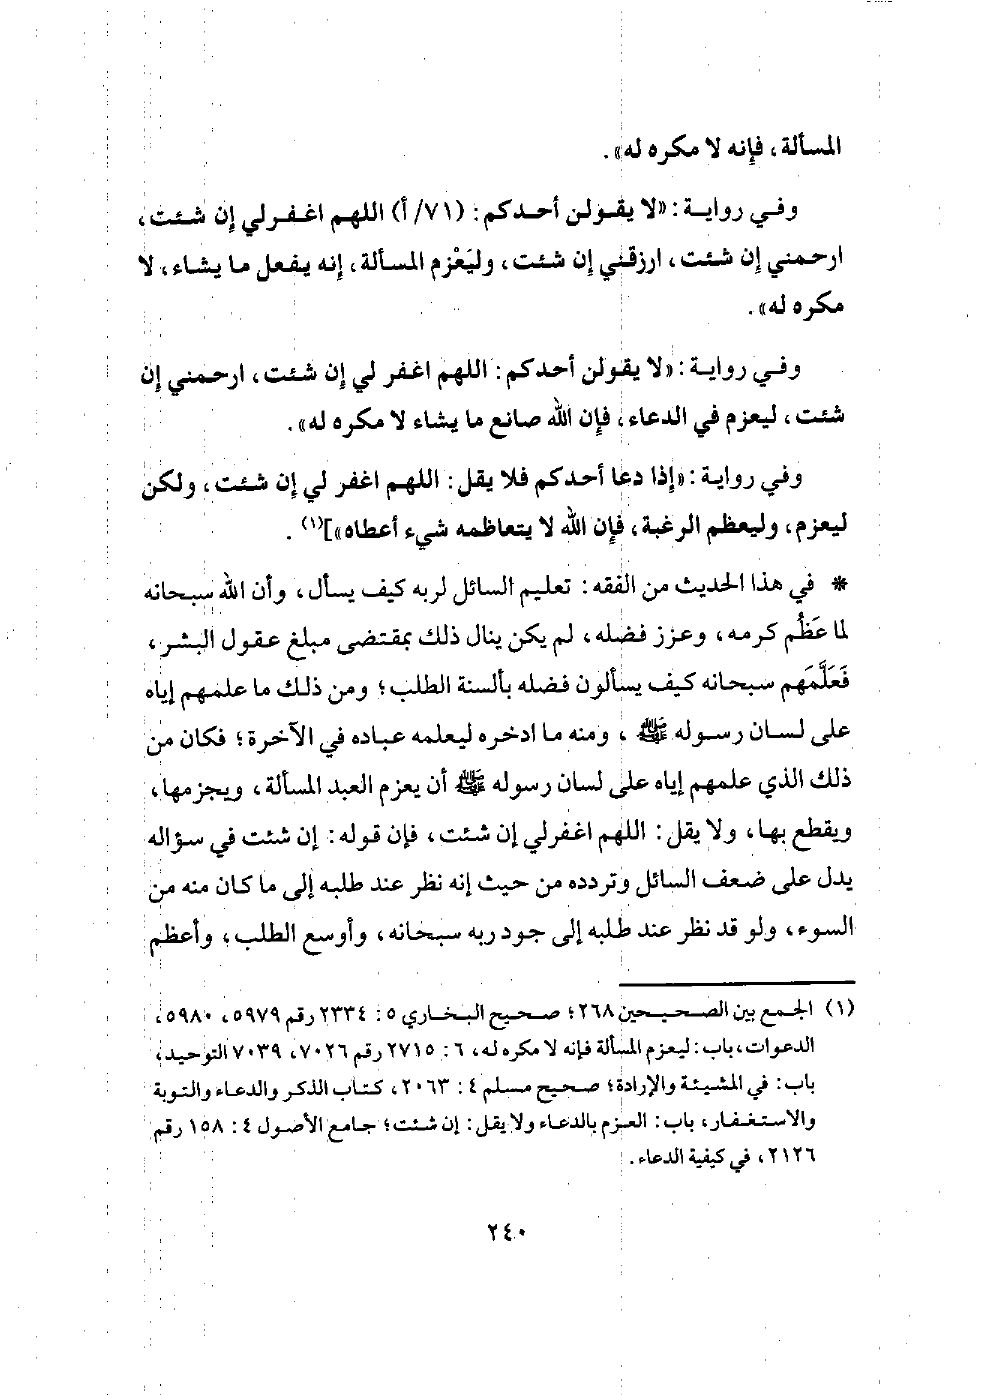 المسألة، فإنه لا مكره له».
وفي رواية: «لا يقولن أحدكم: (٧١/ أ) اللهم اغفرلي إن شئت،
ارحمني إن شئت، ارزقني إن شئت، وليَعْزم المسألة، إنه يفعل ما يشاء، لا
مكره له».
وفي رواية: «لا يقولن أحدكم: اللهم اغفر لي إن شئت، ارحمني إن
شئت، ليعزم في الدعاء، فإن الله صانع ما يشاء لا مكره له».
وفي رواية: «إذا دعا أحدكم فلا يقل: اللهم اغفر لي إن شئت، ولكن
ليعزم، وليعظم الرغبة، فإن الله لا يتعاظمه شيء أعطاه»](١).
* في هذا الحديث من الفقه: تعليم السائل لربه كيف يسأل، وأن الله سبحانه
لما عَظُم كرمه، وعزز فضله، لم يكن ينال ذلك بمقتضى مبلغ عقول البشر،
فَعَلَّمَهم سبحانه كيف يسألون فضله بألسنة الطلب؛ ومن ذلك ما علمهم إياه
على لسان رسوله ﷺ، ومنه ما ادخره ليعلمه عباده في الآخرة؛ فكان من
ذلك الذي علمهم إياه على لسان رسوله ﷺ أن يعزم العبد المسألة، ويجزمها،
ويقطع بها، ولا يقل: اللهم اغفرلي إن شئت، فإن قوله: إن شئت في سؤاله
يدل على ضعف السائل وتردده من حيث إنه نظر عند طلبه إلى ما كان منه من
السوء، ولو قد نظر عند طلبه إلى جود ربه سبحانه، وأوسع الطلب، وأعظم
(١) الجمع بين الصحيحين ٢٦٨؛ صحيح البخاري ٥: ٢٣٣٤ رقم ٥٩٧٩، ٥٩٨٠،
الدعوات، باب: ليعزم المسألة فإنه لا مكره له، ٦: ٢٧١٥ رقم ٧٠٢٦، ٧٠٣٩ التوحيد،
باب: في المشيئة والإرادة؛ صحيح مسلم ٤: ٢٠٦٣، كتاب الذكر والدعاء والتوبة
والاستغفار، باب: العزم بالدعاء ولا يقل: إن شئت؛ جامع الأصول ٤: ١٥٨ رقم
٢١٢٦، في كيفية الدعاء.
٢٤٠